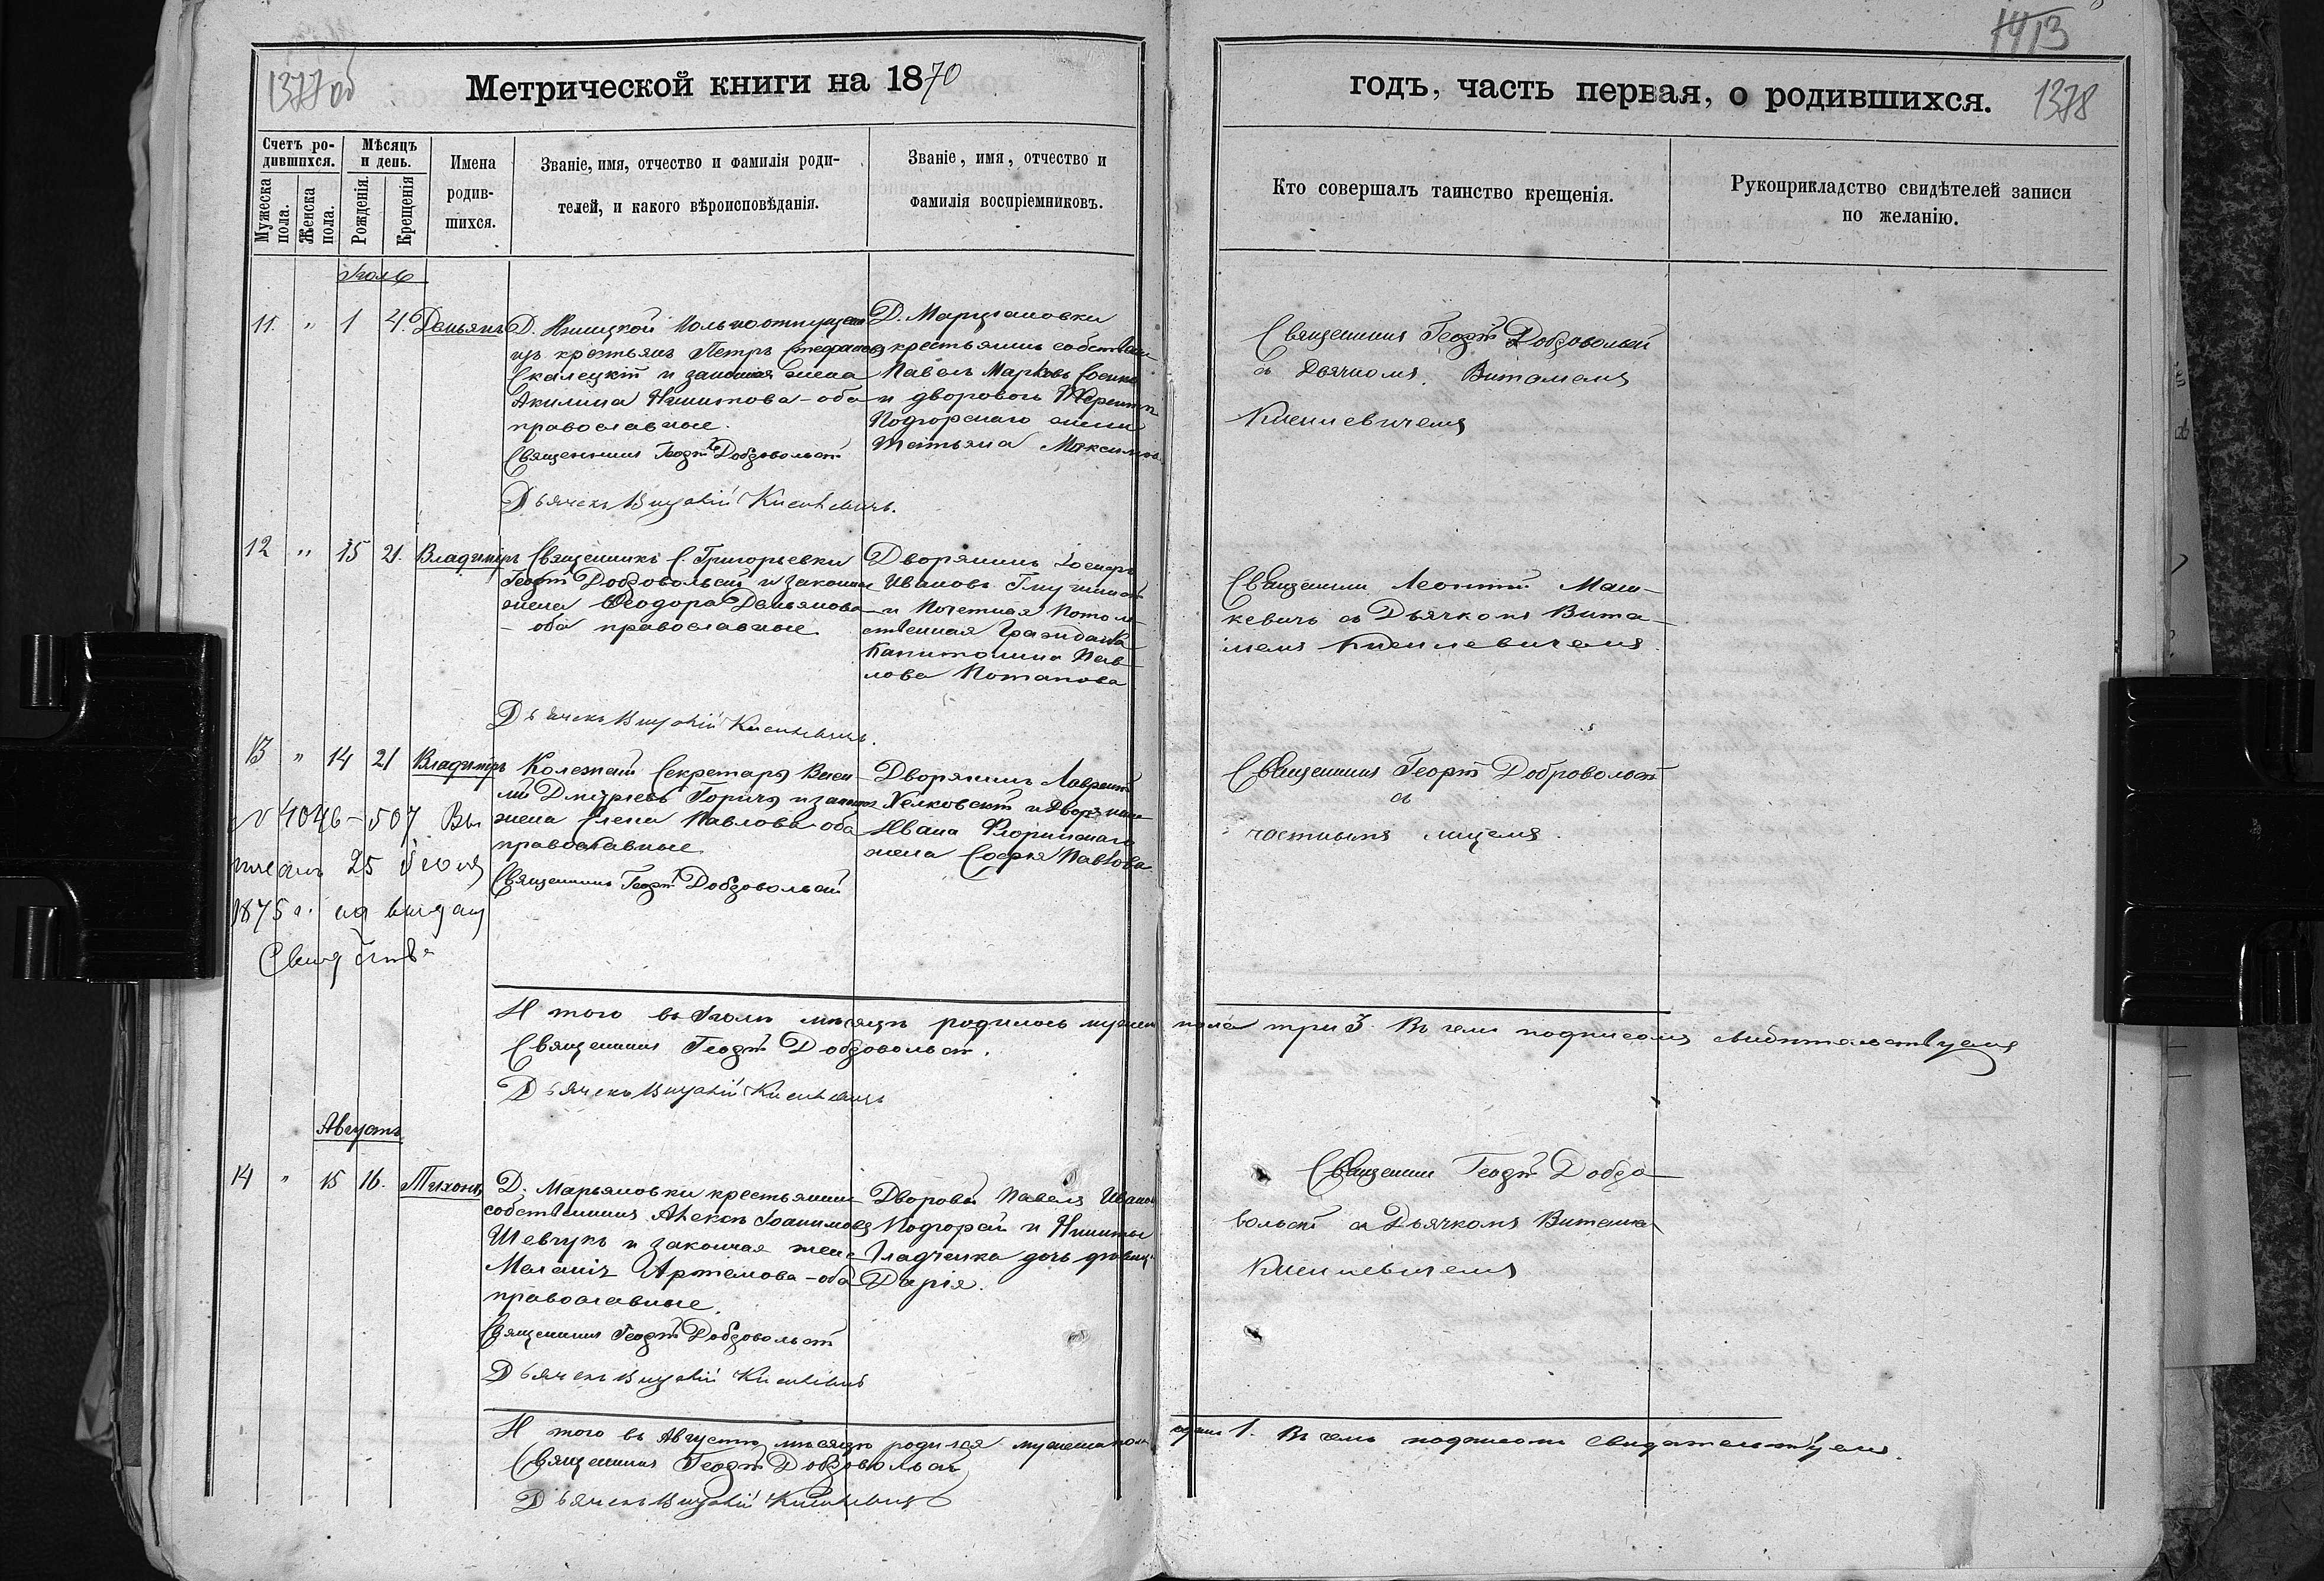 1377 об
Метрической книги на 1870
Счетъ родившихся.
Мѣсяцъ и день.
Имена родившихся.
Званіе, имя, отчество и фамилія родителей, и какого вѣроисповѣданія.
Званіе, имя, отчество и фамилія воспріемниковъ.
Мужеска пола.
Женска пола.
Рожденія.
Крещенія
Іюль
11. " 1 4. Демьянъ
Д.
изъ крестьянъ Петръ Стефановъ
Скалецкій и законная жена
Акилина Никитова - оба
православные.
Священникъ Георгій Добровольскій
Дьячекъ Виталій
Д. Марьяновки
крестьянинъ собствен
Павелъ Марковъ
и дворового Терентія
Подгорскаго жена
Татьяна Максимов
12 " 15 21. Владиміръ
Священникъ С. Григорьевки
Георгій Добровольскій и законная
жена Ѳеодора Демьянова
- оба православные
Дьячекъ Виталій
Дворянинъ
Ивановъ
и Почетная Потом-
ственная Гражданка
Капитолина Пав-
лова Потапова
13 " 14 21 Владиміръ
Колежскій Секретарь Васи-
лій Дмитріевъ Горичъ и законная
жена Елена Павлова оба
православные
Священникъ Георгій Добровольскій
Дворянинъ Лаврентій
и Дворянина
Ивана Флоринскаго
жена Софія Павлова
№ 4046 - 507 Вы
писанъ 25 Іюля
1875 г. и выдан
Свид
И того въ Іюлѣ мѣсяцѣ родилось мужеска пола три 3. Въ чемъ подписомъ свидѣтельствуемъ
Священникъ Георгій Добровольскій.
Дьячекъ Виталій
Августъ
14 " 15 16. Тихонъ
Д. Марьяновки крестьянинъ
собственникъ Алексѣй Іоакимовъ
Шевчукъ и законная жена
Меланія Артемова - оба
православные.
Священникъ Георгій Добровольскій
Дьячекъ Виталій
Дворовый Павелъ Иванов
Подгорскій и Никиты
Гладченка дочь дѣвица
Дарія.
И того въ Августѣ мѣсяцѣ родился мужеска пола единъ 1. Въ чемъ подписомъ свидѣтельствуемъ.
Священникъ Георгій Добровольскій
Дьячекъ Виталій
1413
годъ, часть первая, о родившихся.
1378
Кто совершалъ таинство крещенія.
Рукоприкладство свидѣтелей записи по желанію.
Священникъ Георгій Добровольскій
съ Дьячкомъ Виталіемъ
Священникъ Леонтій Маш-
кевичъ съ Дьячкомъ Вита-
ліемъ
Священникъ Георгій Добровольскій
съ
частнымъ лицемъ.
Священникъ Георгій Добро-
вольскій съ Дьячкомъ Виталіемъ